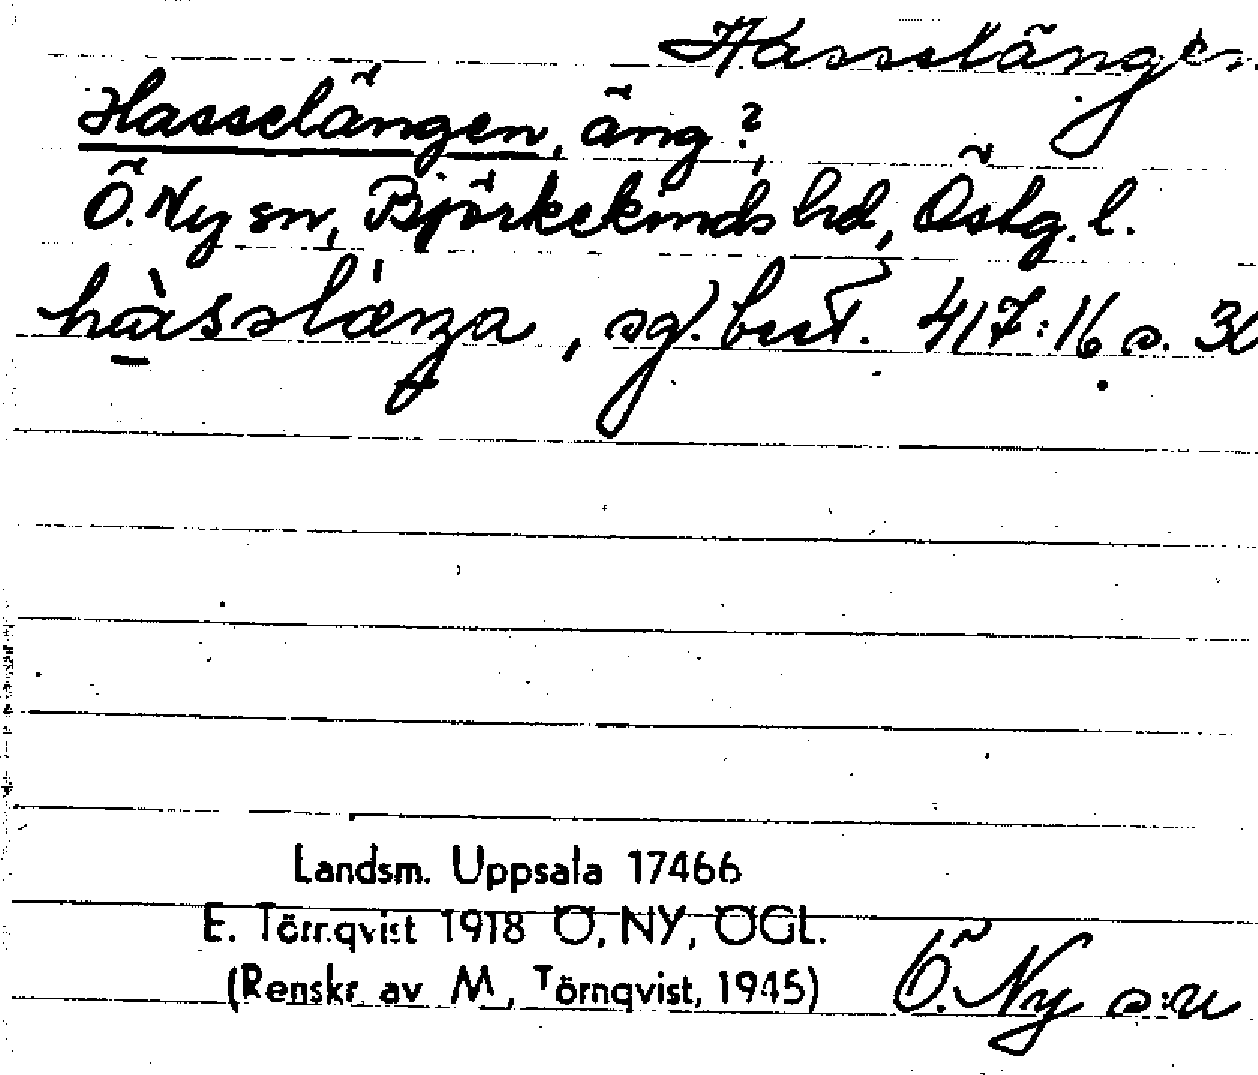 Hasselängen
Hasselängen, äng?,
Ö. Ny sn, Björkekinds hd, Östg. l.
hàsslæŋa, sg. best. 417:16 s. 30
Landsm. Uppsala 17466
E. Törnqvist 1918 Ö, NY, ÖGL.
(Renskr av M, Törnqvist, 1945)
Ö. Ny s:n